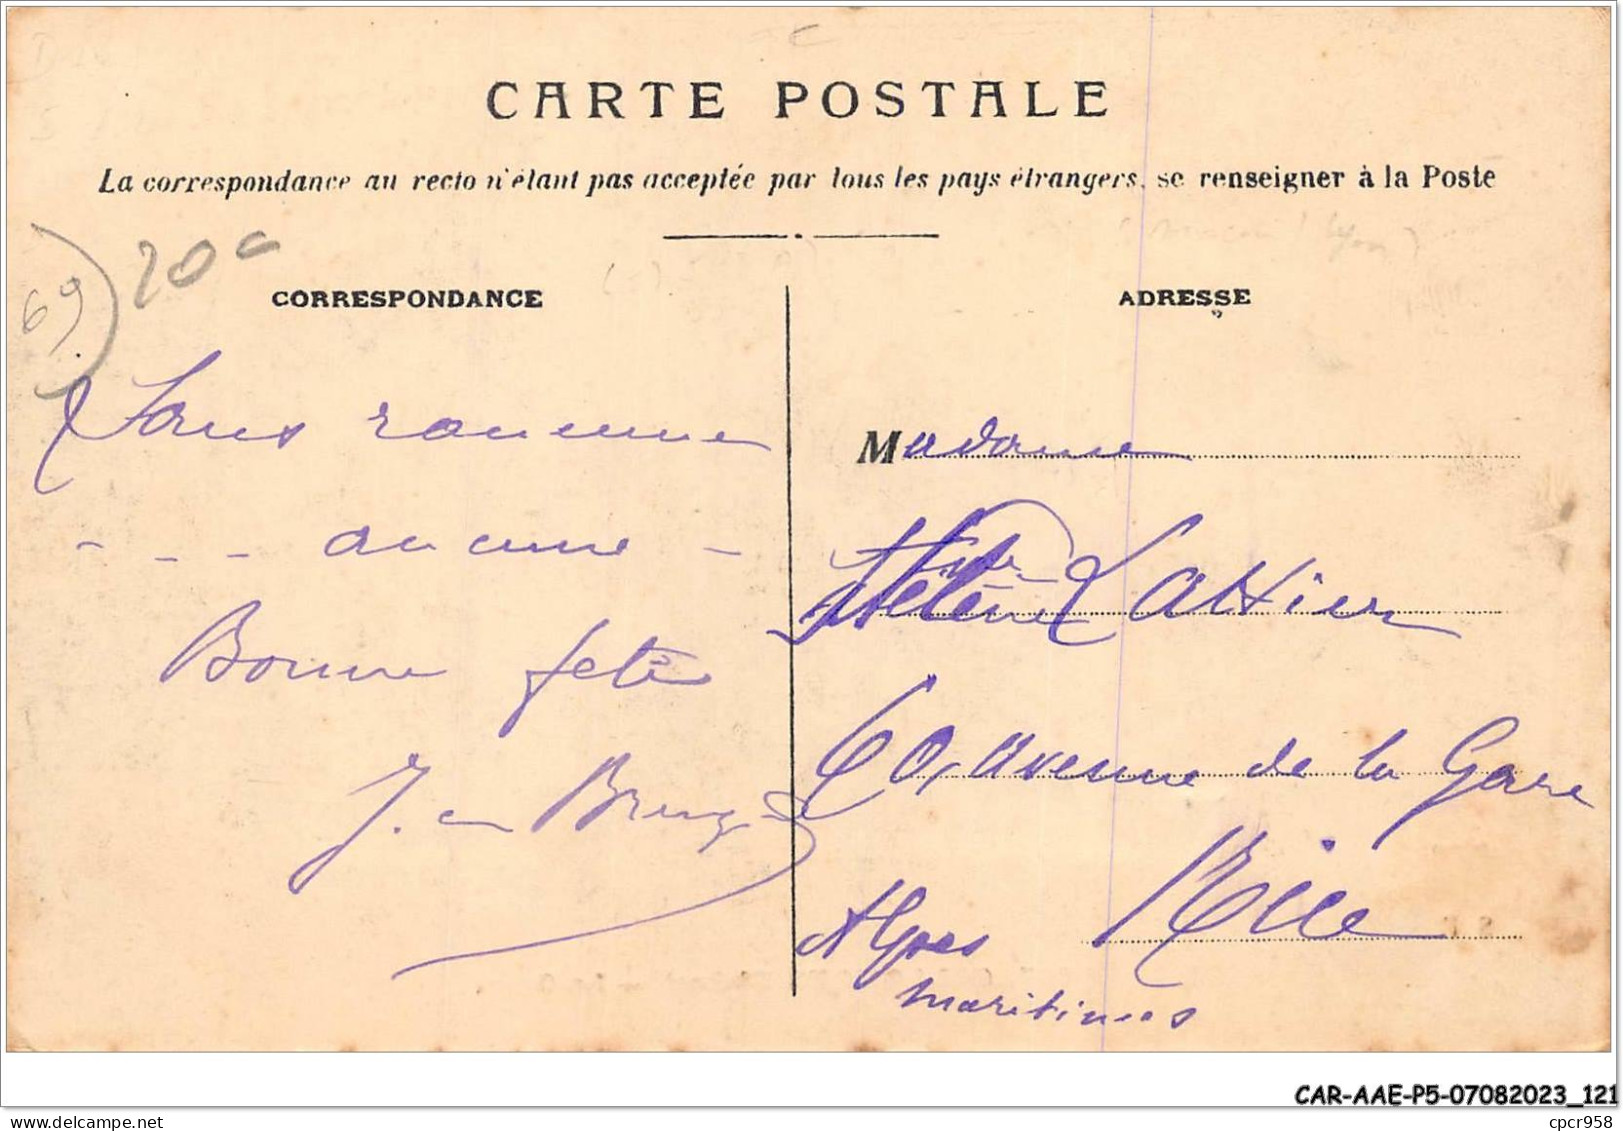 CARTE POSTALE
La correspondance au recto n'étant pas acceptée par tous les pays étrangers, se renseigner à la Poste
69.
20 c
CORRESPONDANCE
Sans rancune
- . . - aucune -
Bonne fête
J. en
ADRESSE
Madame
Hélène Lattier
60, avenue de la Gare
Nice
Alpes
maritimes
CAR-AAE-P5-07082023_121
cpcr958